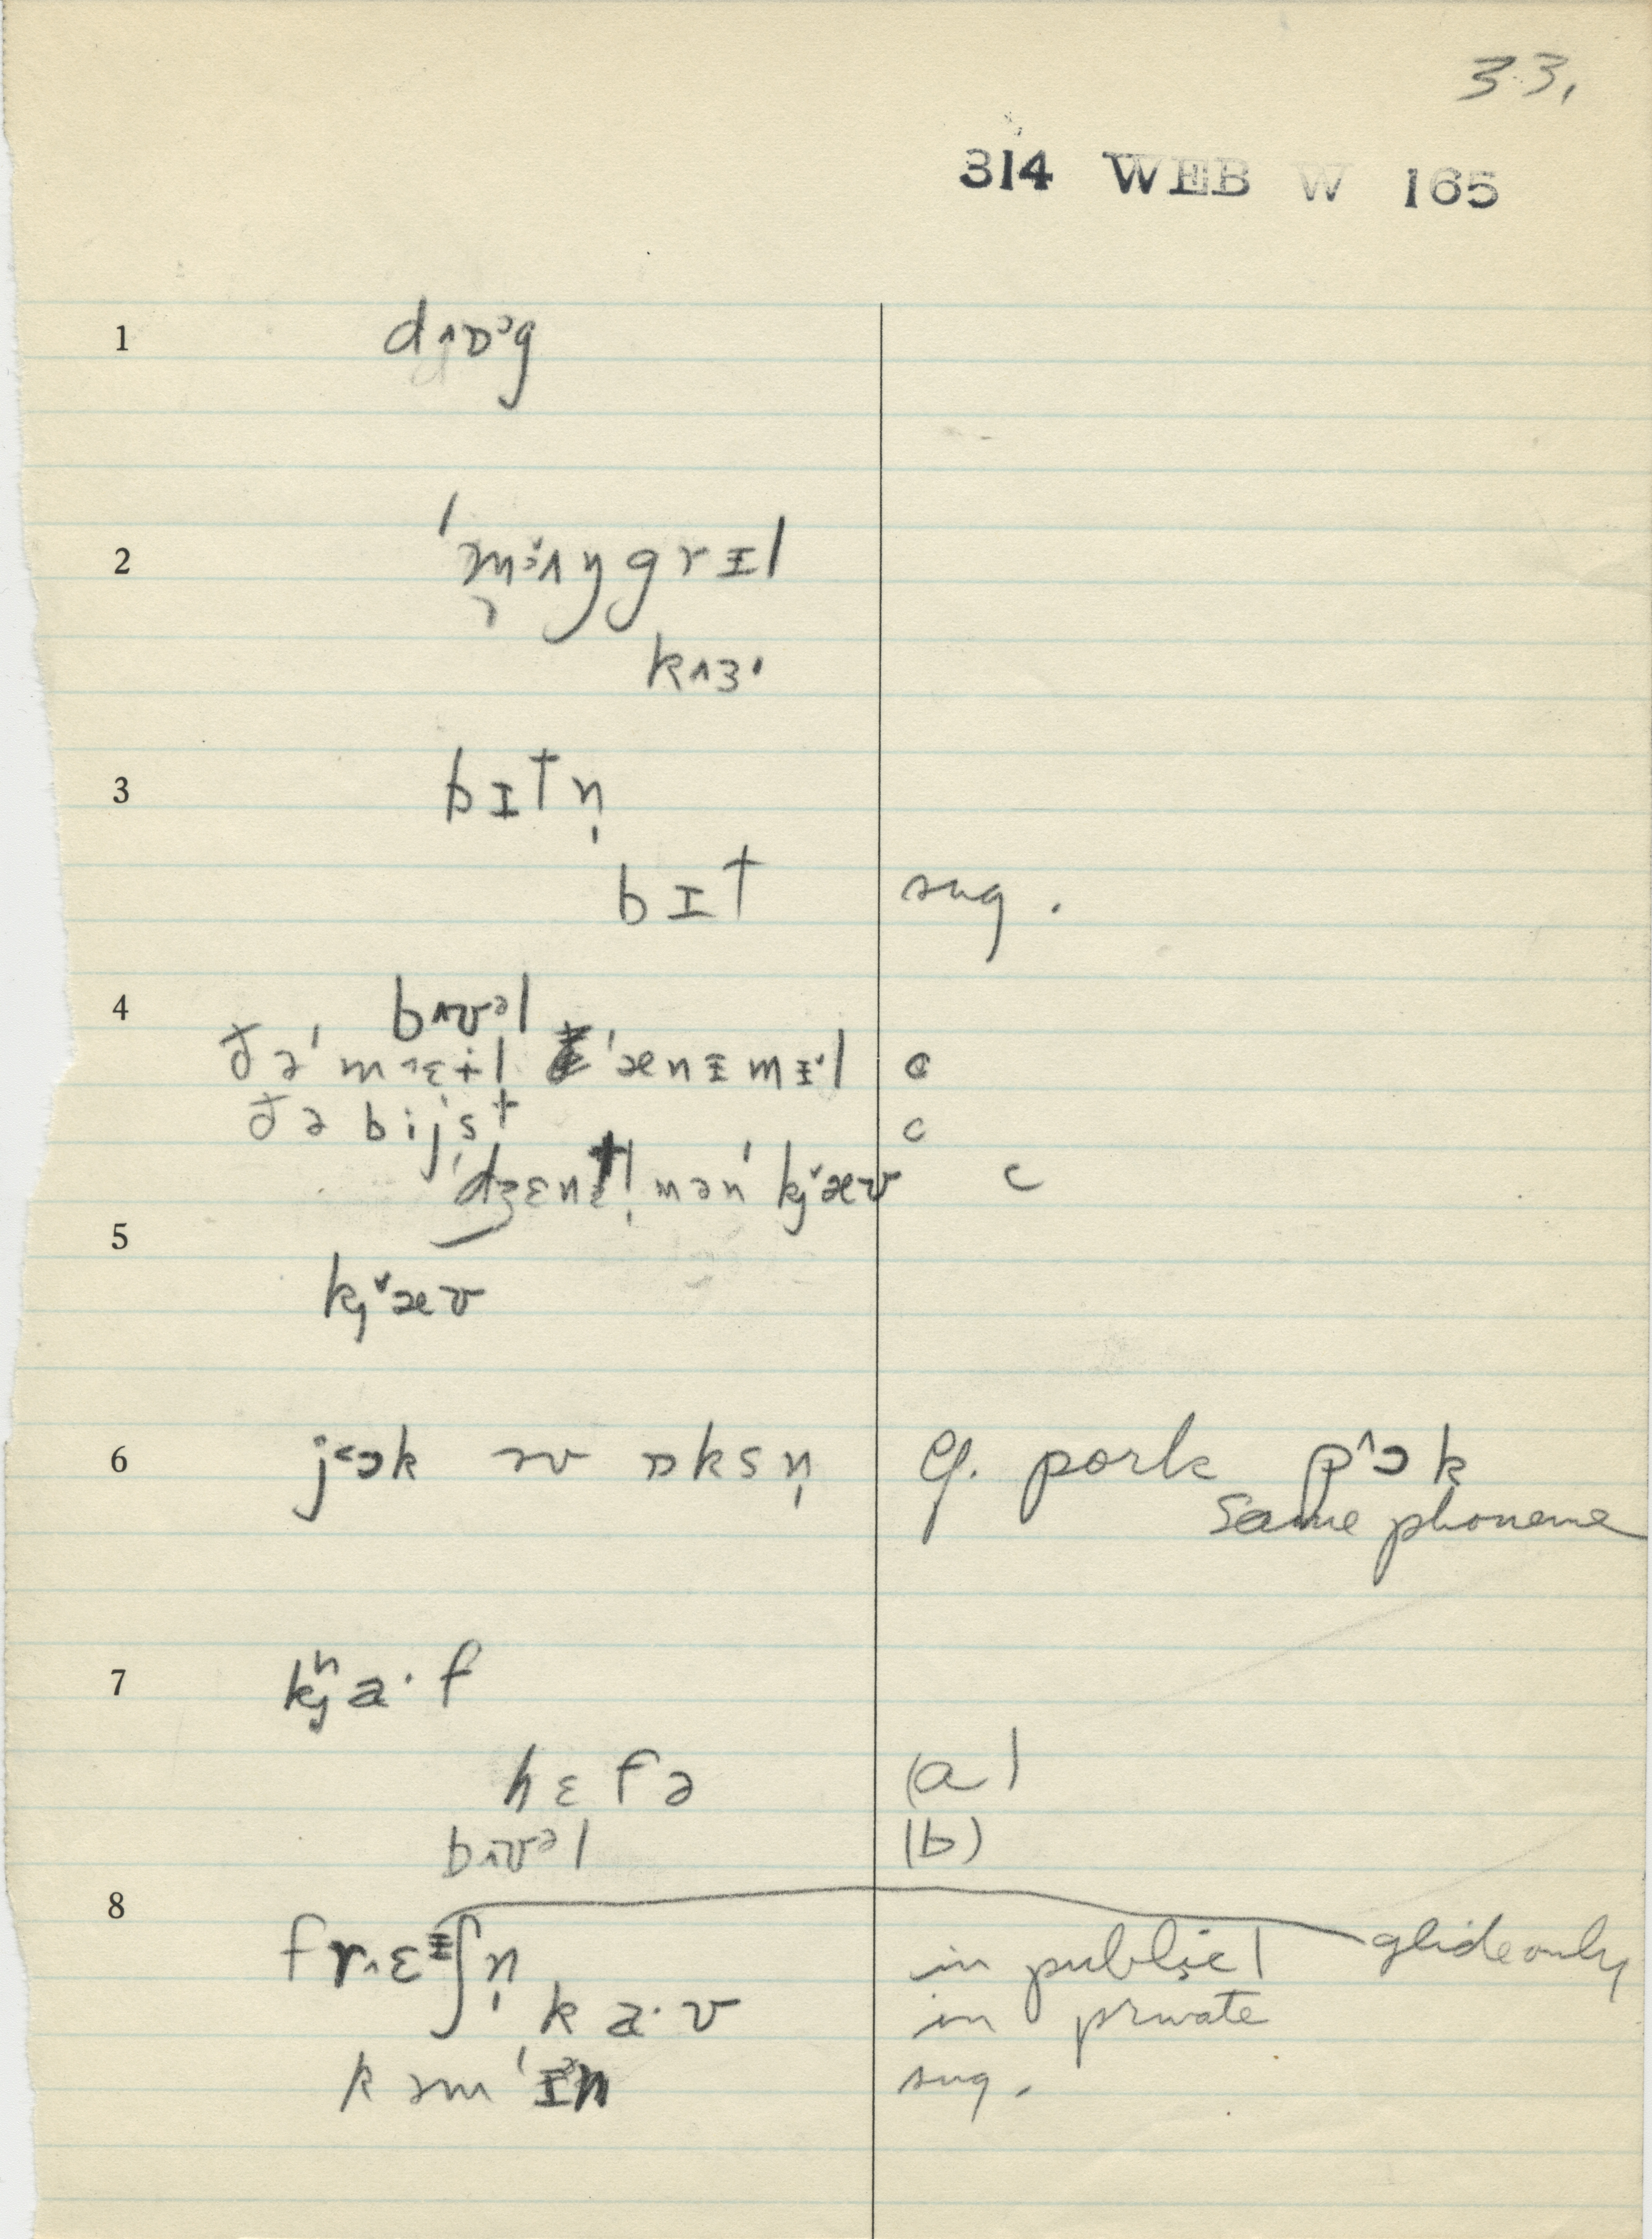 33.
314 WEB W 165
1 d^ɒᵓg
2 ˈmɜ^ŋgrɪl
k^ɜ·
3 bɪtn̩
bɪt sug.
4 b^ʊᵊl
ðəˈm^ɛɨl ˈænɨmɨl c
ðə bijst c
ˈdʒɛntl̩mənˈkjˇæʊ c
5
kjˇæʊ
6 j˂ɔk əv ɒksn̩ cf. pork p^ɔk
same phoneme
7 kjʰa·f
hɛfə (a)
b^ʊᵊl (b)
8 fr^ɛᶤʃn̩ in public glide only
ka·v in private
kəmˈɪᵊn sug.